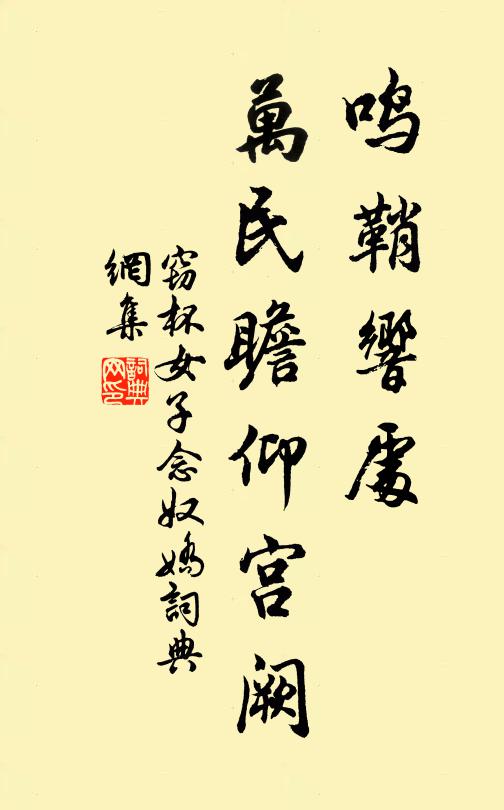 鳴鞘響處
萬民瞻仰宮闕
竊杯女子念奴嬌詞典
網集
詞典
网印